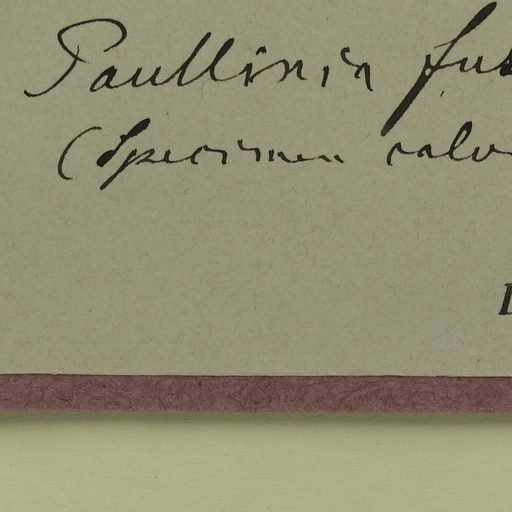 Paullinia fus
(Specimen calv